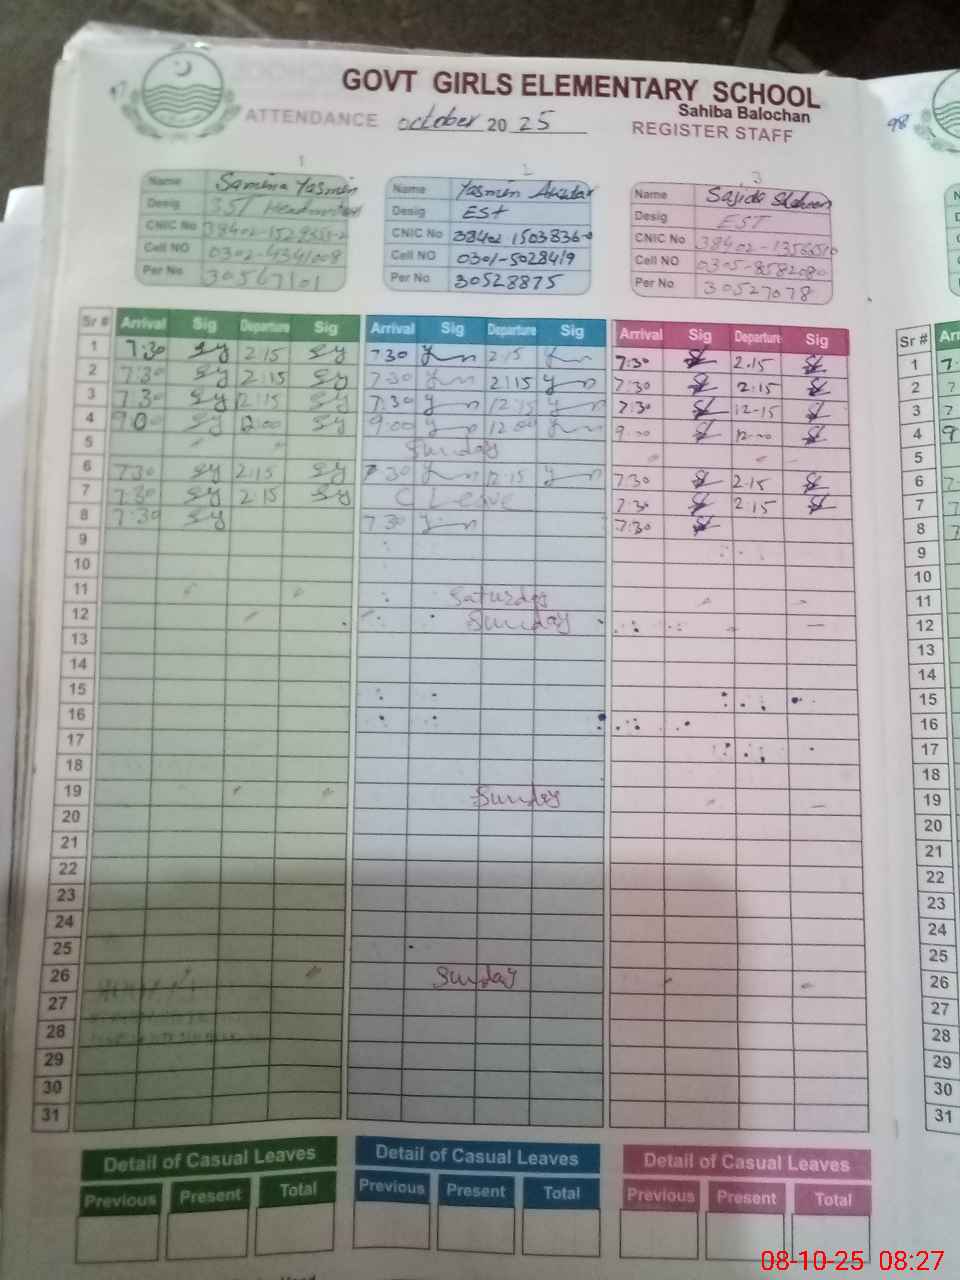 97
GOVT GIRLS ELEMENTARY SCHOOL
Sahiba Balochan
ATTENDANCE october 2025 REGISTER STAFF
98
1 2 3
Name Samina Yasmin Name Yasmin Akhtar Name Sajida Shaheen
Desig SST Desig EST Desig EST
CNIC No CNIC No CNIC No
Cell NO 0302-4341008 Cell NO 0301-5028419 Cell NO 0305-8582080
Per No 30567101 Per No 30528875 Per No 30527078
Sr # Arrival Sig Departure Sig Arrival Sig Departure Sig Arrival Sig Departure Sig Sr #
1 7:30 sy 2:15 sy 730 2:15 7:30 2.15 1
2 7:30 sy 2:15 sy 7:30 2:15 7:30 2:15 2
3 7:30 sy 2:15 sy 7:30 12:15 7:30 12-15 3
4 900 sy 12:00 sy 9:00 12:00 9:00 12:00 4
5 Sunday 5
6 7:30 sy 2:15 sy 7:30 12:15 7:30 2.15 6
7 7:30 sy 2:15 sy C Leave 7:30 2:15 7
8 7:30 sy 7:30 7:30 8
9 9
10 10
11 Saturday 11
12 Sunday 12
13 13
14 14
15 15
16 16
17 17
18 18
19 Sunday 19
20 20
21 21
22 22
23 23
24 24
25 25
26 Sunday 26
27 27
28 28
29 29
30 30
31 31
Detail of Casual Leaves Detail of Casual Leaves Detail of Casual Leaves
Previous Present Total Previous Present Total Previous Present Total
08-10-25 08:27